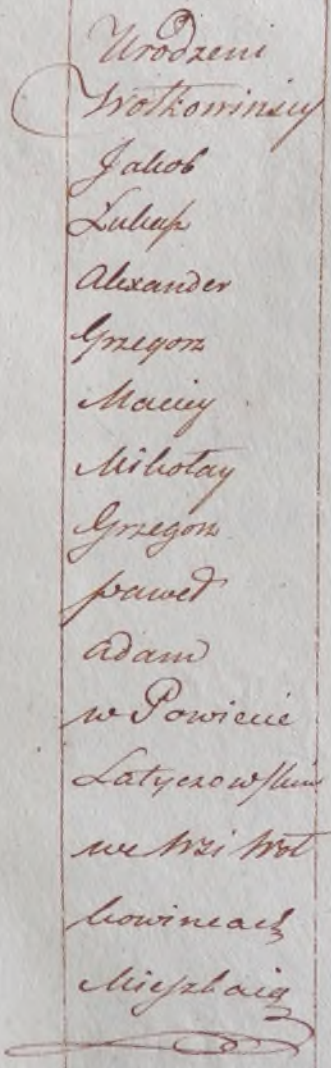 Urodzeni
Wołkowinscy
Jakob
Łukasz
Alexander
Grzegorz
Maciey
Mikołay
Grzegorz
paweł
adam
w Powiecie
Latyczowskim
we Wsi Woł
kowincach
Mieszkaią